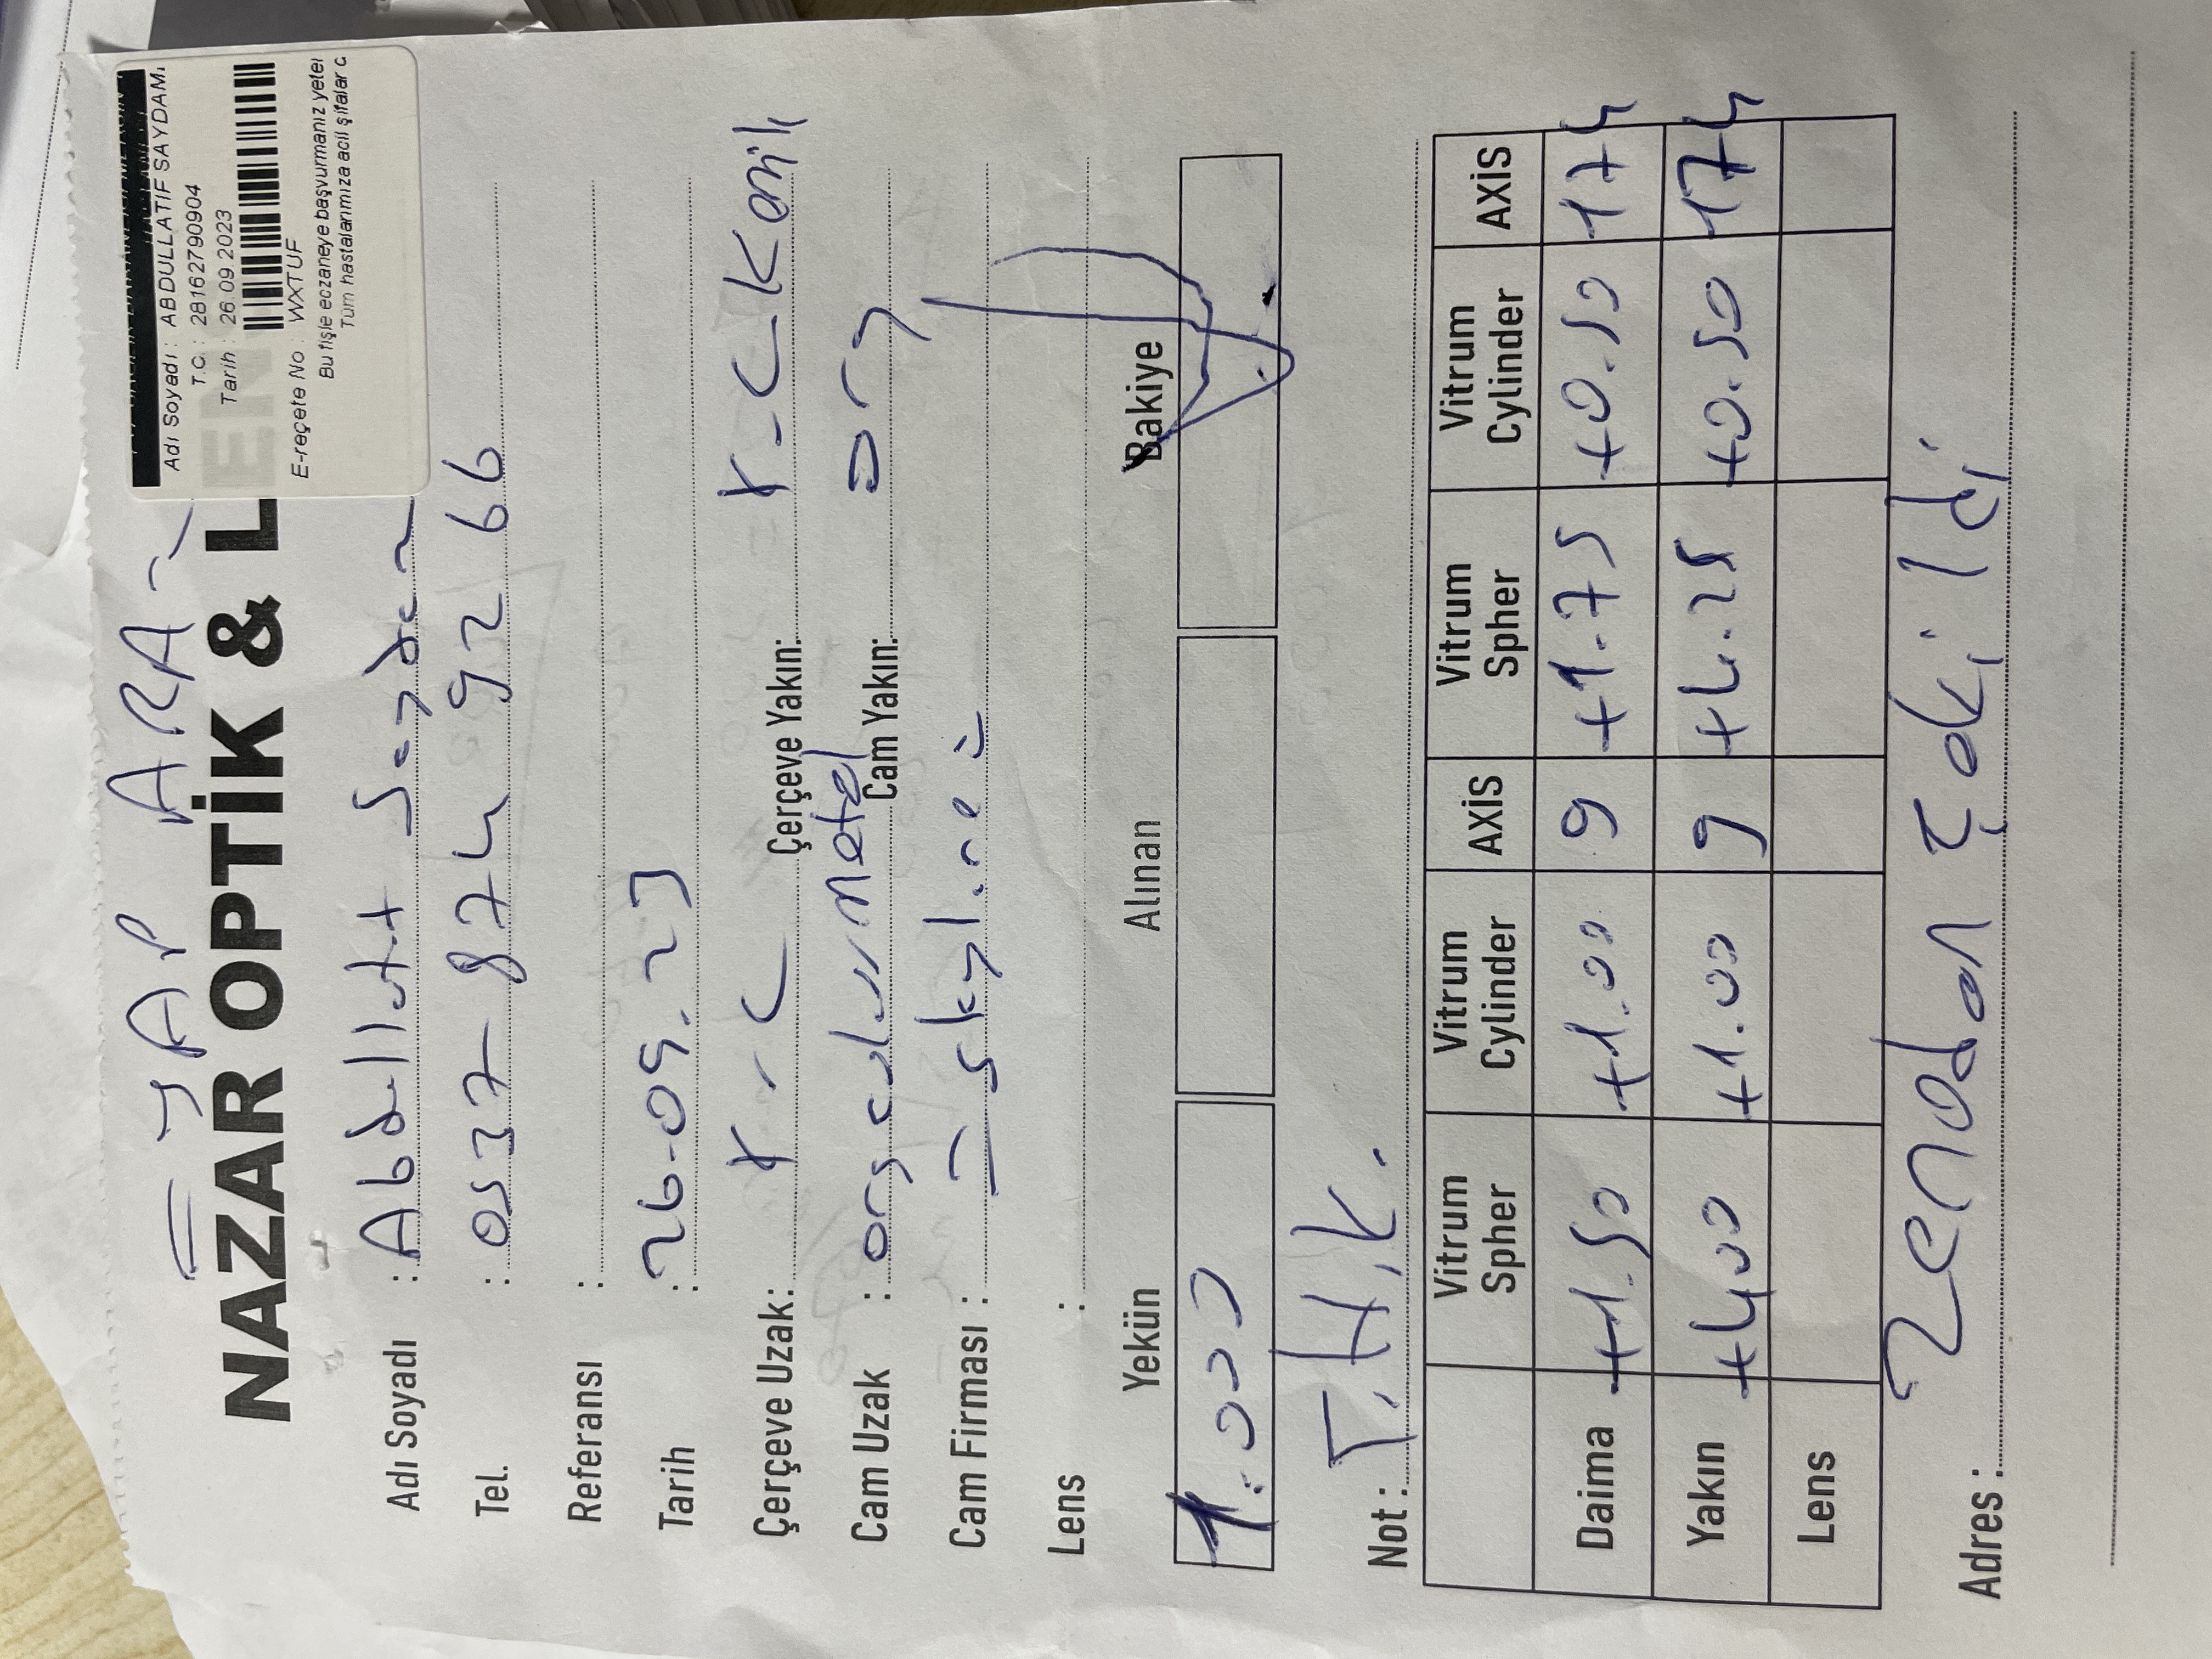 = YAP ARA =
NAZAR OPTİK & LEN
Adı Soyadı : ABDULLATIF SAYDAM
T.C. : 28162790904
Tarih : 26.09.2023
E-reçete No : WXTUF
Bu fişle eczaneye başvurmanız yeter
Tüm hastalarımıza acil şifalar d
Adı Soyadı : Abdullatif Saydam
Tel. : 0537 874 92 66
Referansı :
Tarih : 26.09.23
Çerçeve Uzak: K-C Çerçeve Yakın: K-C Kemik
Cam Uzak : org color Metal Cam Yakın: org
Cam Firması : = skyline =
Lens :
Yekün Alınan Bakiye
1.000
Not : T.H.K.
Vitrum Spher Vitrum Cylinder AXİS Vitrum Spher Vitrum Cylinder AXİS
Daima +1.50 +1.00 9 +1.75 +0.50 174
Yakın +4.00 +1.00 9 +4.25 +0.50 174
Lens
Adres : zenadan çekildi